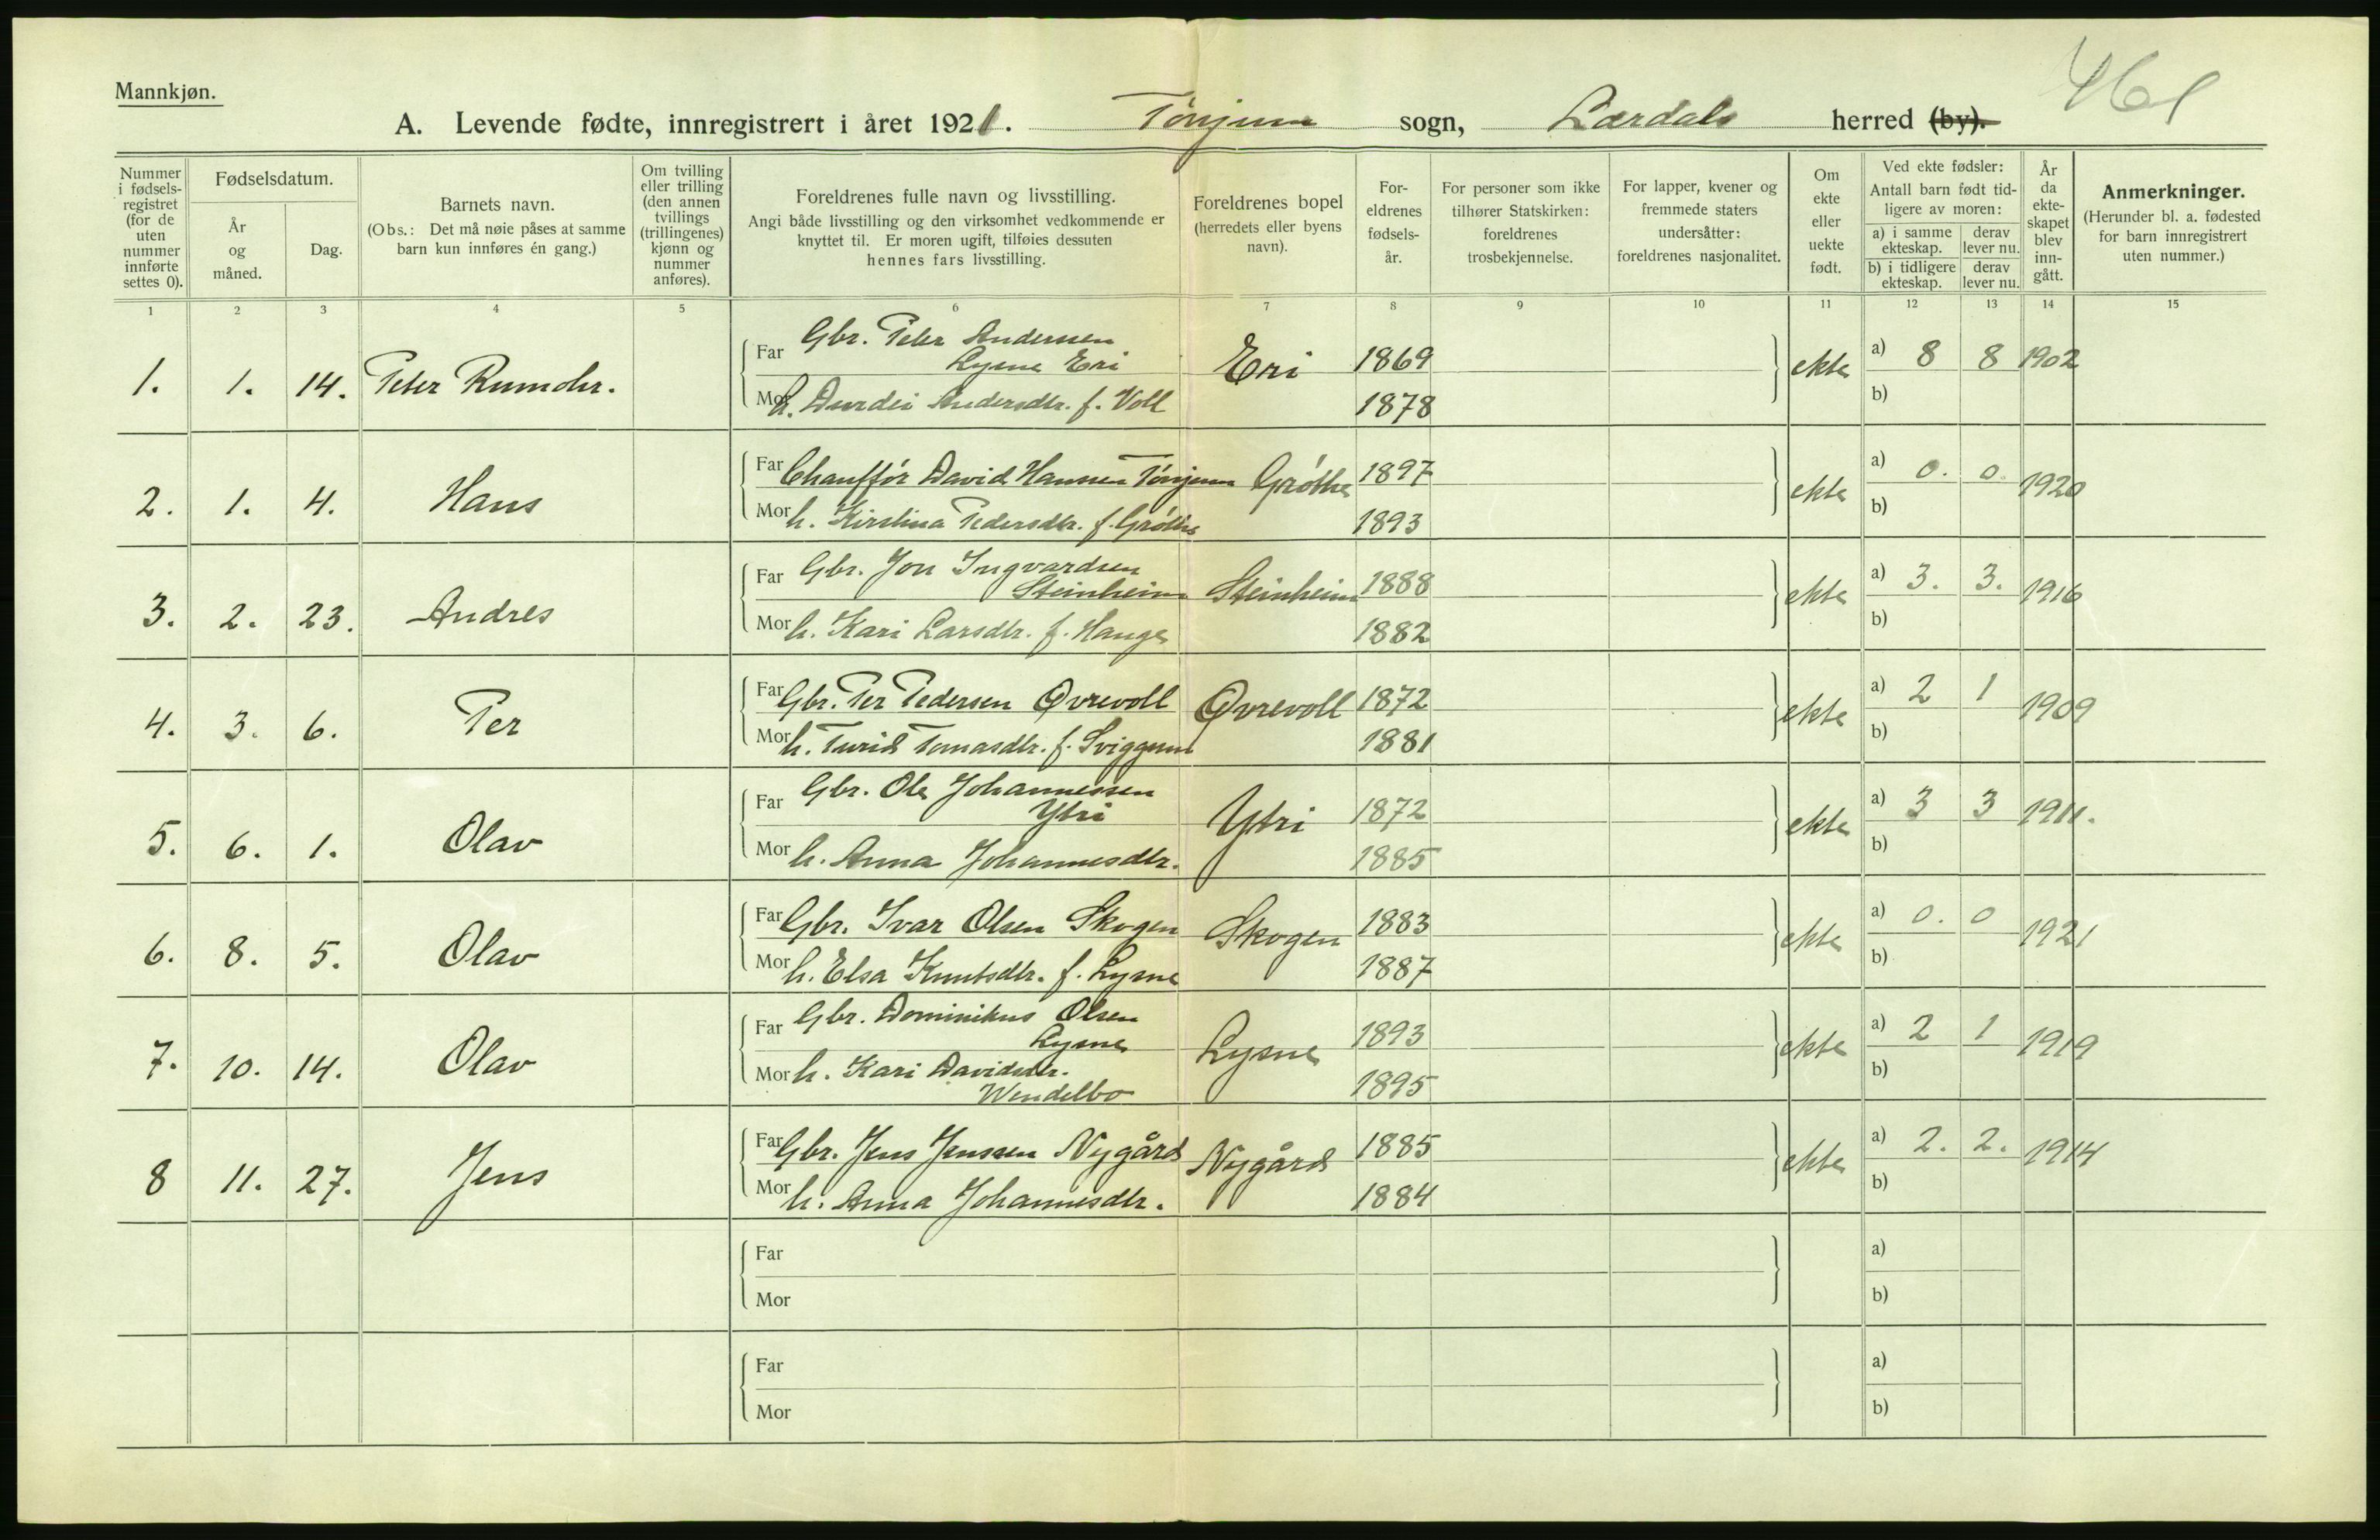 Mannkjøn.
461
A. Levende fødte, innregistrert i året 1921. Tönjum sogn, Lærdals herred (by).
Nummer i fødsels-registret (for de uten nummer innførte settes 0).
Fødselsdatum.
År og måned.
Dag.
Barnets navn.
(Obs.: Det må nøie påses at samme barn kun innføres én gang.)
Om tvilling eller trilling (den annen tvillings (trillingenes) kjønn og nummer anføres).
Foreldrenes fulle navn og livsstilling.
Angi både livsstilling og den virksomhet vedkommende er knyttet til. Er moren ugift, tilføies dessuten hennes fars livsstilling.
Foreldrenes bopel (herredets eller byens navn).
For-eldrenes fødsels-år.
For personer som ikke tilhører Statskirken: foreldrenes trosbekjennelse.
For lapper, kvener og fremmede staters undersåtter: foreldrenes nasjonalitet.
Om ekte eller uekte født.
Ved ekte fødsler:
Antall barn født tid-ligere av moren:
a) i samme ekteskap. derav lever nu.
b) i tidligere ekteskap. derav lever nu.
År da ekte-skapet blev inn-gått.
Anmerkninger.
(Herunder bl. a. fødested for barn innregistrert uten nummer.)
1 2 3 4 5 6 7 8 9 10 11 12 13 14 15
1. 1. 14. Peter Rumohr.
Far Gbr. Peter Andersen Lysne Eri
Eri 1869 ekte a) 8 8 1902
Mor h. Durdei Andersdtr. f. Voll 1878 b)
2. 1. 4. Hans
Far Chaufför David Hansen Tönjum Gröthe 1897 ekte a) 0. 0. 1920
Mor h. Kirstina Pedersdtr. f. Gröthe 1893 b)
3. 2. 23. Andres
Far Gbr. Jon Ingvardsen Steinheim
Steinheim 1888 ekte a) 3. 3. 1916
Mor h. Kari Larsdtr. f. Hauge 1882 b)
4. 3. 6. Per
Far Gbr. Per Pedersen Øvrevoll Øvrevoll 1872 ekte a) 2 1 1909
Mor h. Turid Tomasdtr. f. Sviggum 1881 b)
5. 6. 1. Olav
Far Gbr. Ole Johannessen Ytri
Ytri 1872 ekte a) 3 3 1911.
Mor h. Anna Johannesdtr. 1885 b)
6. 8. 5. Olav
Far Gbr. Ivar Olsen Skogen Skogen 1883 ekte a) 0. 0 1921
Mor h. Elsa Knutsdtr. f. Lysne 1887 b)
7. 10. 14. Olav
Far Gbr. Dominikus Olsen Lysne
Lysne 1893 ekte a) 2 1 1919
Mor h. Kari Davidsdtr. Wendelbo 1895 b)
8 11. 27. Jens
Far Gbr. Jens Jenssen Nygård Nygård 1885 ekte a) 2. 2. 1914
Mor h. Anna Johannesdtr. 1884 b)
Far a)
Mor b)
Far a)
Mor b)